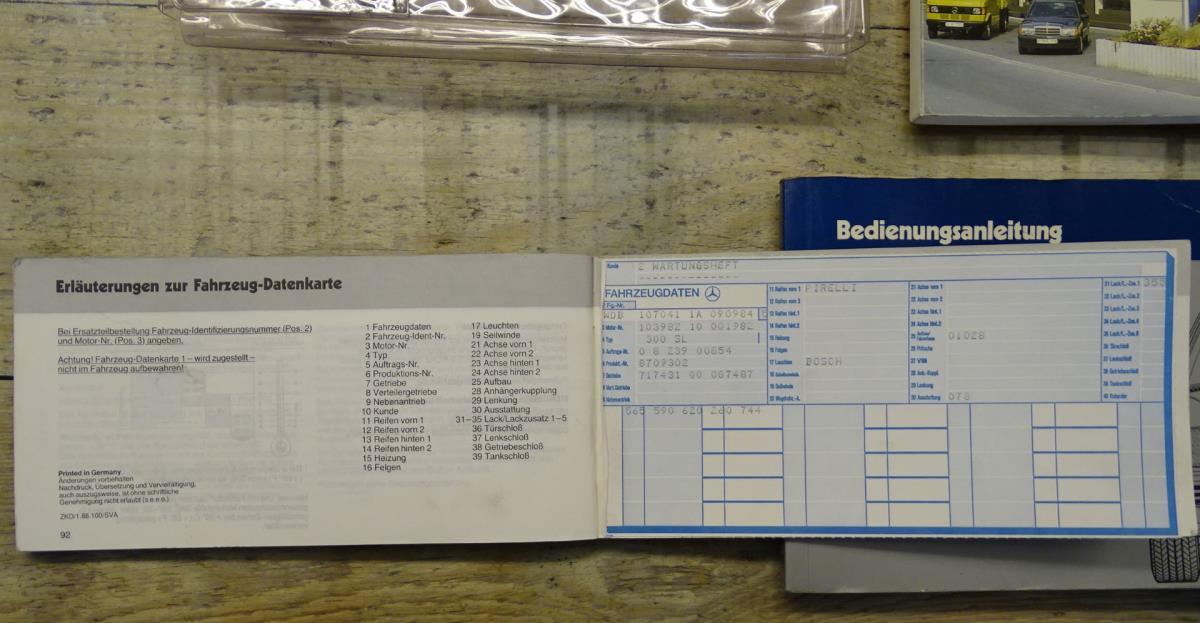 Bedienungsanleitung
Erläuterungen zur Fahrzeug-Datenkarte
Bei Ersatzteilbestellung Fahrzeug-Identifizierungsnummer (Pos. 2)
und Motor-Nr. (Pos. 3) angeben.
Achtung! Fahrzeug-Datenkarte 1 – wird zugestellt –
nicht im Fahrzeug aufbewahren!
Printed in Germany
Änderungen vorbehalten
Nachdruck, Übersetzung und Vervielfältigung,
auch auszugsweise, ist ohne schriftliche
Genehmigung nicht erlaubt (s.e.e.o.)
ZKD/1.88.100/SVA
92
1 Fahrzeugdaten
2 Fahrzeug-Ident.-Nr.
3 Motor-Nr.
4 Typ
5 Auftrags-Nr.
6 Produktions-Nr.
7 Getriebe
8 Verteilergetriebe
9 Nebenantrieb
10 Kunde
11 Reifen vorn 1
12 Reifen vorn 2
13 Reifen hinten 1
14 Reifen hinten 2
15 Heizung
16 Felgen
17 Leuchten
19 Seilwinde
21 Achse vorn 1
22 Achse vorn 2
23 Achse hinten 1
24 Achse hinten 2
25 Aufbau
28 Anhängerkupplung
29 Lenkung
30 Ausstattung
31–35 Lack/Lackzusatz 1–5
36 Türschloß
37 Lenkschloß
38 Getriebeschloß
39 Tankschloß
Kunde
2 WARTUNGSHEFT
FAHRZEUGDATEN
2 Fzg.-Nr.
WDB 107041 1A 090984
3 Motor-Nr. 103982 10 001982
4 Typ 300 SL
5 Auftrags-Nr. 0 8 239 00854
6 Produkt.-Nr. 8709302
7 Getriebe 717431 00 087487
8 Vert.Getriebe
9 Nebenantrieb
11 Reifen vorn 1 PIRELLI
12 Reifen vorn 2
13 Reifen hint.1
14 Reifen hint.2
15 Heizung
16 Felgen
17 Leuchten BOSCH
19 Seilwinde
21 Achse vorn 1
22 Achse vorn 2
23 Achse hint.1
24 Achse hint.2
01028
26 Pritsche
27 VIN
28 Anh.-Kuppl.
29 Lenkung
30 Ausstattung 078
31 Lack/L.-Zus.1 353
32 Lack/L.-Zus.2
33 Lack/L.-Zus.3
34 Lack/L.-Zus.4
35 Lack/L.-Zus.5
36 Türschloß
37 Lenkschloß
38 Getriebeschloß
39 Tankschloß
565 590 620 260 744